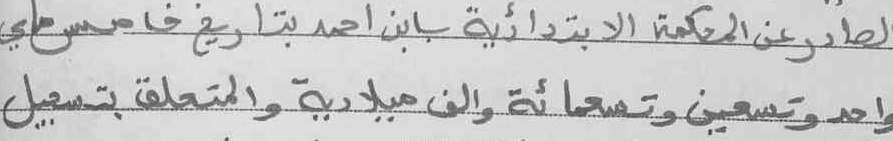 الصادر عن المحكمة الابتدائية بابن احمد بتاريخ خامس ماي
واحد وتسعين وتسعمائة والف ميلادية والمتعلق بتسجيل